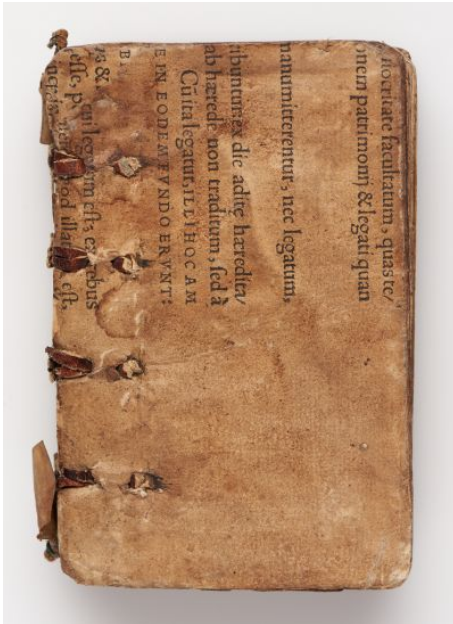 iocritate facultatum, quas te/
onem patrimonij & legati quan
manumitterentur, nec legatum,
ibuntur ex die aditę hæredita/
ab hærede non traditum, sed à
Cui ita legatur, ILLI HOC AM
E IN EODEM FVNDO ERVNT:
B
& cui legatum est, ex rebus
esse, quod est,